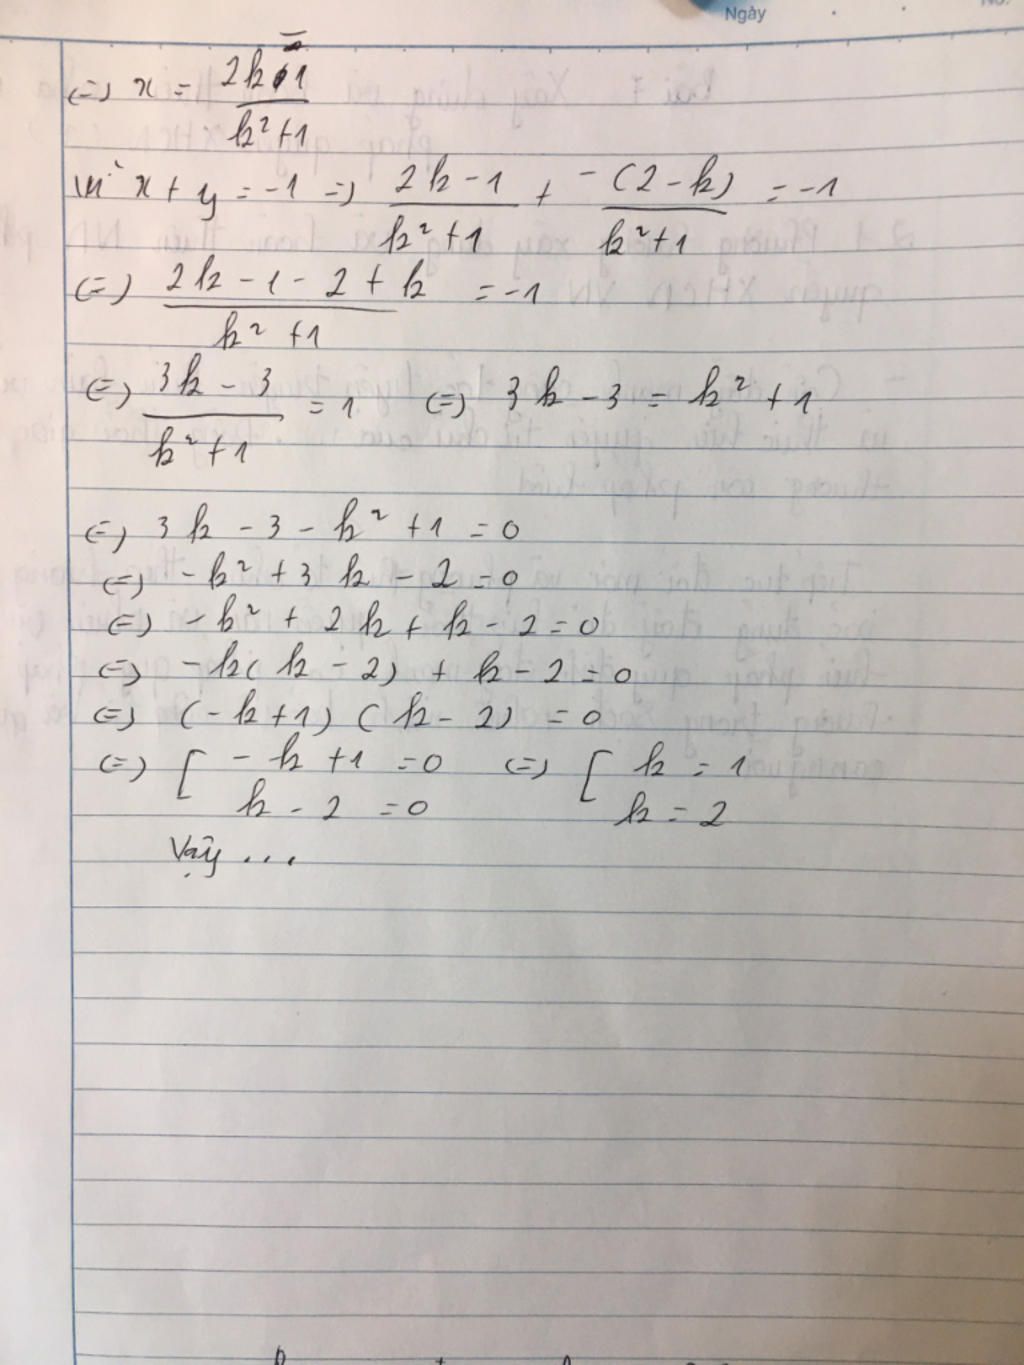 Ngày
No.
(=) x = \frac{2k-1}{k²+1}
Vì x + y = -1 => \frac{2k-1}{k²+1} + \frac{-(2-k)}{k²+1} = -1
(=) \frac{2k-1-2+k}{k²+1} = -1
(=) \frac{3k-3}{k²+1} = 1 (=) 3k-3 = k²+1
(=) 3k - 3 - k² + 1 = 0
(=) -k² + 3k - 2 = 0
(=) -k² + 2k + k - 2 = 0
(=) -k(k-2) + k - 2 = 0
(=) (-k+1)(k-2) = 0
(=) [ -k+1 = 0 (=) [ k = 1
k - 2 = 0 k = 2
Vậy ...